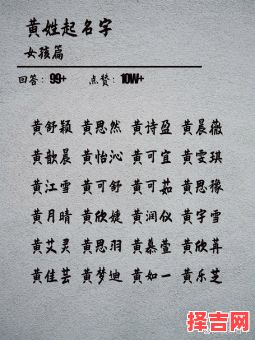 黄姓起名字
女孩篇
回答：99+ 点赞：10W+
黄舒颖 黄思然 黄诗盈 黄晨薇
黄歆晨 黄怡沁 黄可宜 黄雯琪
黄江雪 黄可舒 黄可茹 黄思豫
黄月晴 黄欣婕 黄润仪 黄宇雪
黄艾灵 黄思羽 黄慕萱 黄欣苒
黄佳芸 黄梦迪 黄如一 黄乐芝
择吉网